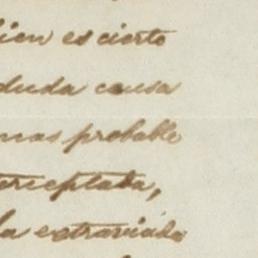 bien es cierto
duda causa
mas probable
terceptada,
la extraviado